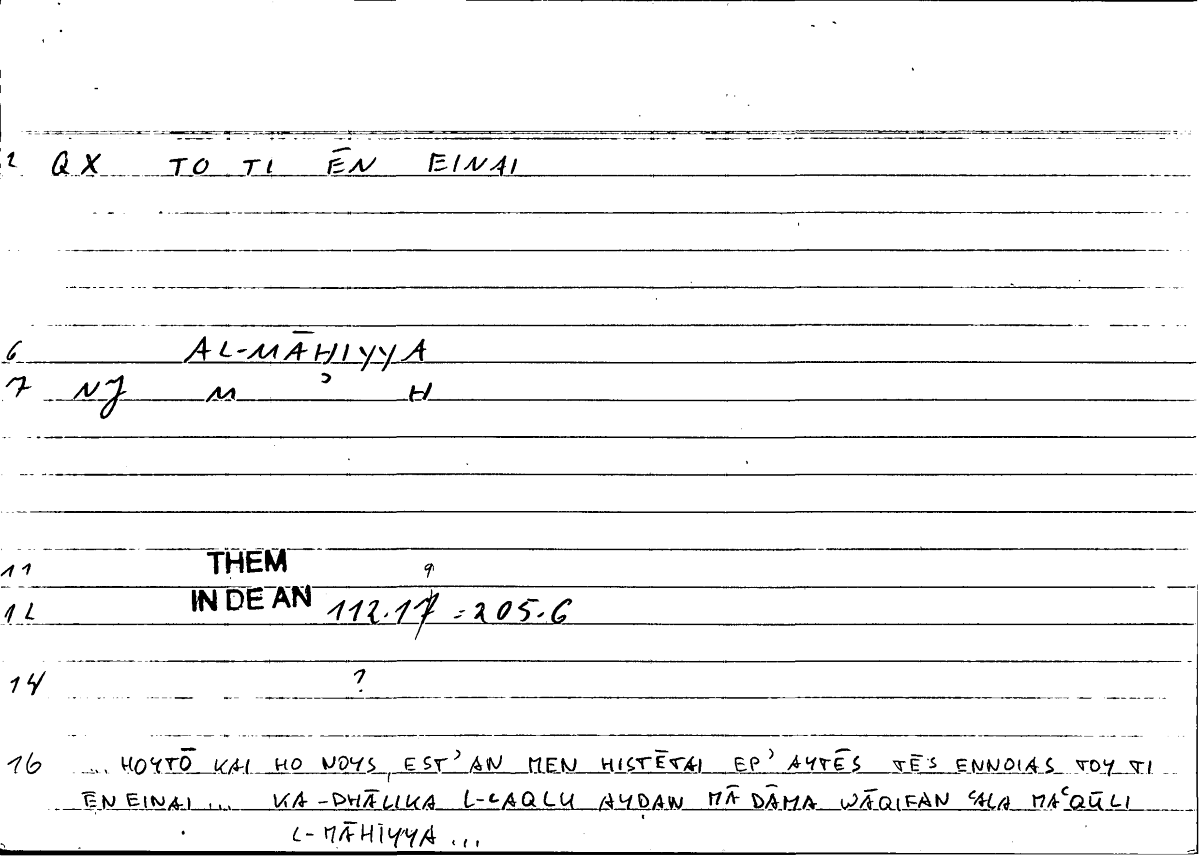 2 QX TO TI ĒN EINAI
6 AL-MĀHIYYA
7 NJ M ʾ H
11 THEM 9
12 IN DE AN 112.17 = 205.6
14 ?
16 ... HOYTŌ KAI HO NOYS, EST' AN MEN HISTĒTAI EP' AYTĒS TĒS ENNOIAS TOY TI
ĒN EINAI ... KA-DHĀLIKA L-ʿAQLU AYDAN MĀ DĀMA WĀQIFAN ʿALA MAʿQŪLI
L-MĀHIYYA ...